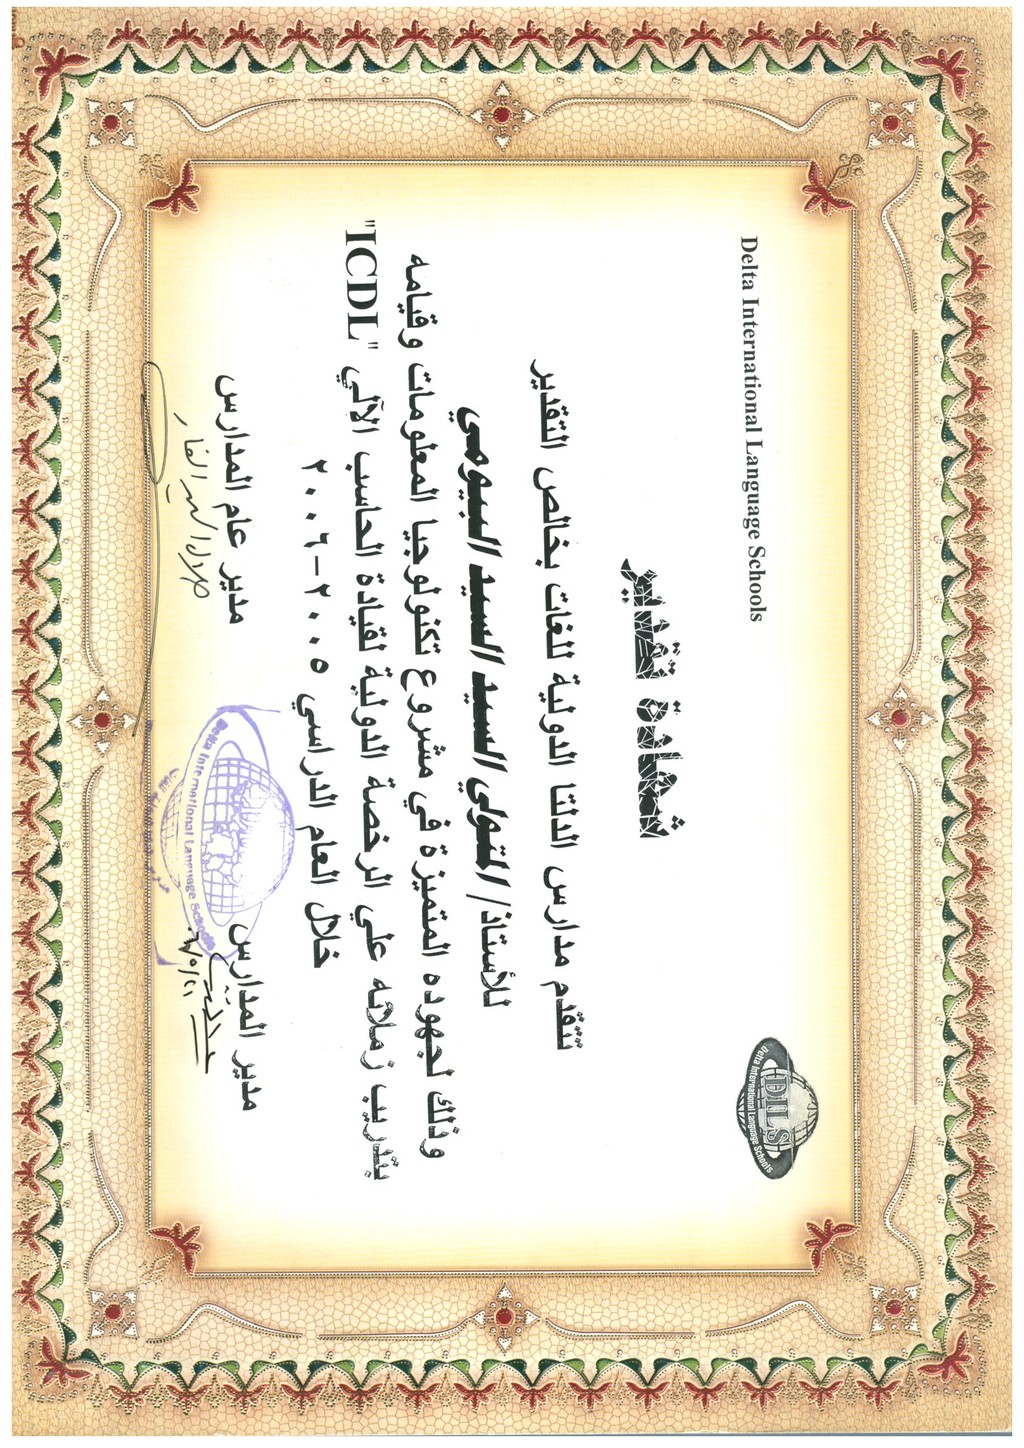 Delta International Language Schools
DILS
Delta International Language Schools
شهادة تقدير
تتقدم مدارس الدلتا الدولية للغات بخالص التقدير
للأستاذ/ المتولي السيد السيد البيومي
وذلك لجهوده المتميزة في مشروع تكنولوجيا المعلومات وقيامه
بتدريب زملائه علي الرخصة الدولية لقيادة الحاسب الآلي "ICDL"
خلال العام الدراسي ٢٠٠٥-٢٠٠٦
مدير المدارس
مدير عام المدارس
Delta International Language Schools